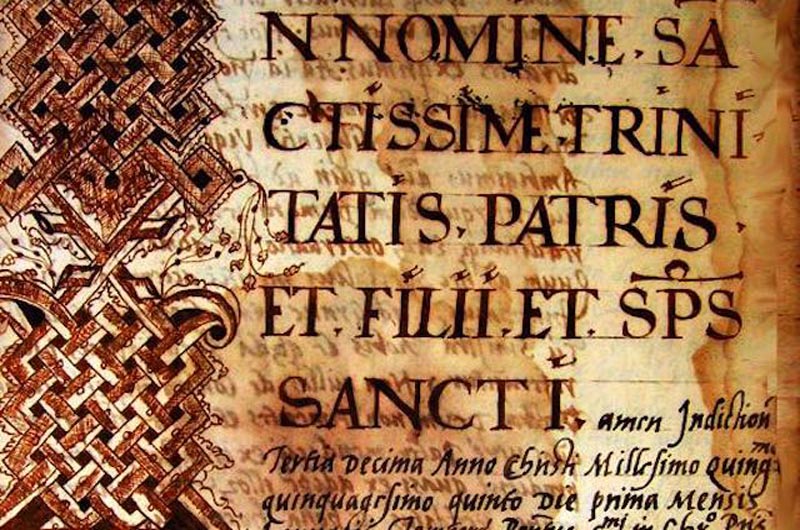 N NOMINE. SA
CTISSIME. TRINI
TATIS. PATRIS.
ET. FILII. ET. SPS
SANCTI. amen Indiction
Tertia Decima Anno Christi Millesimo quing
quinquagesimo quinto Die prima Mensis